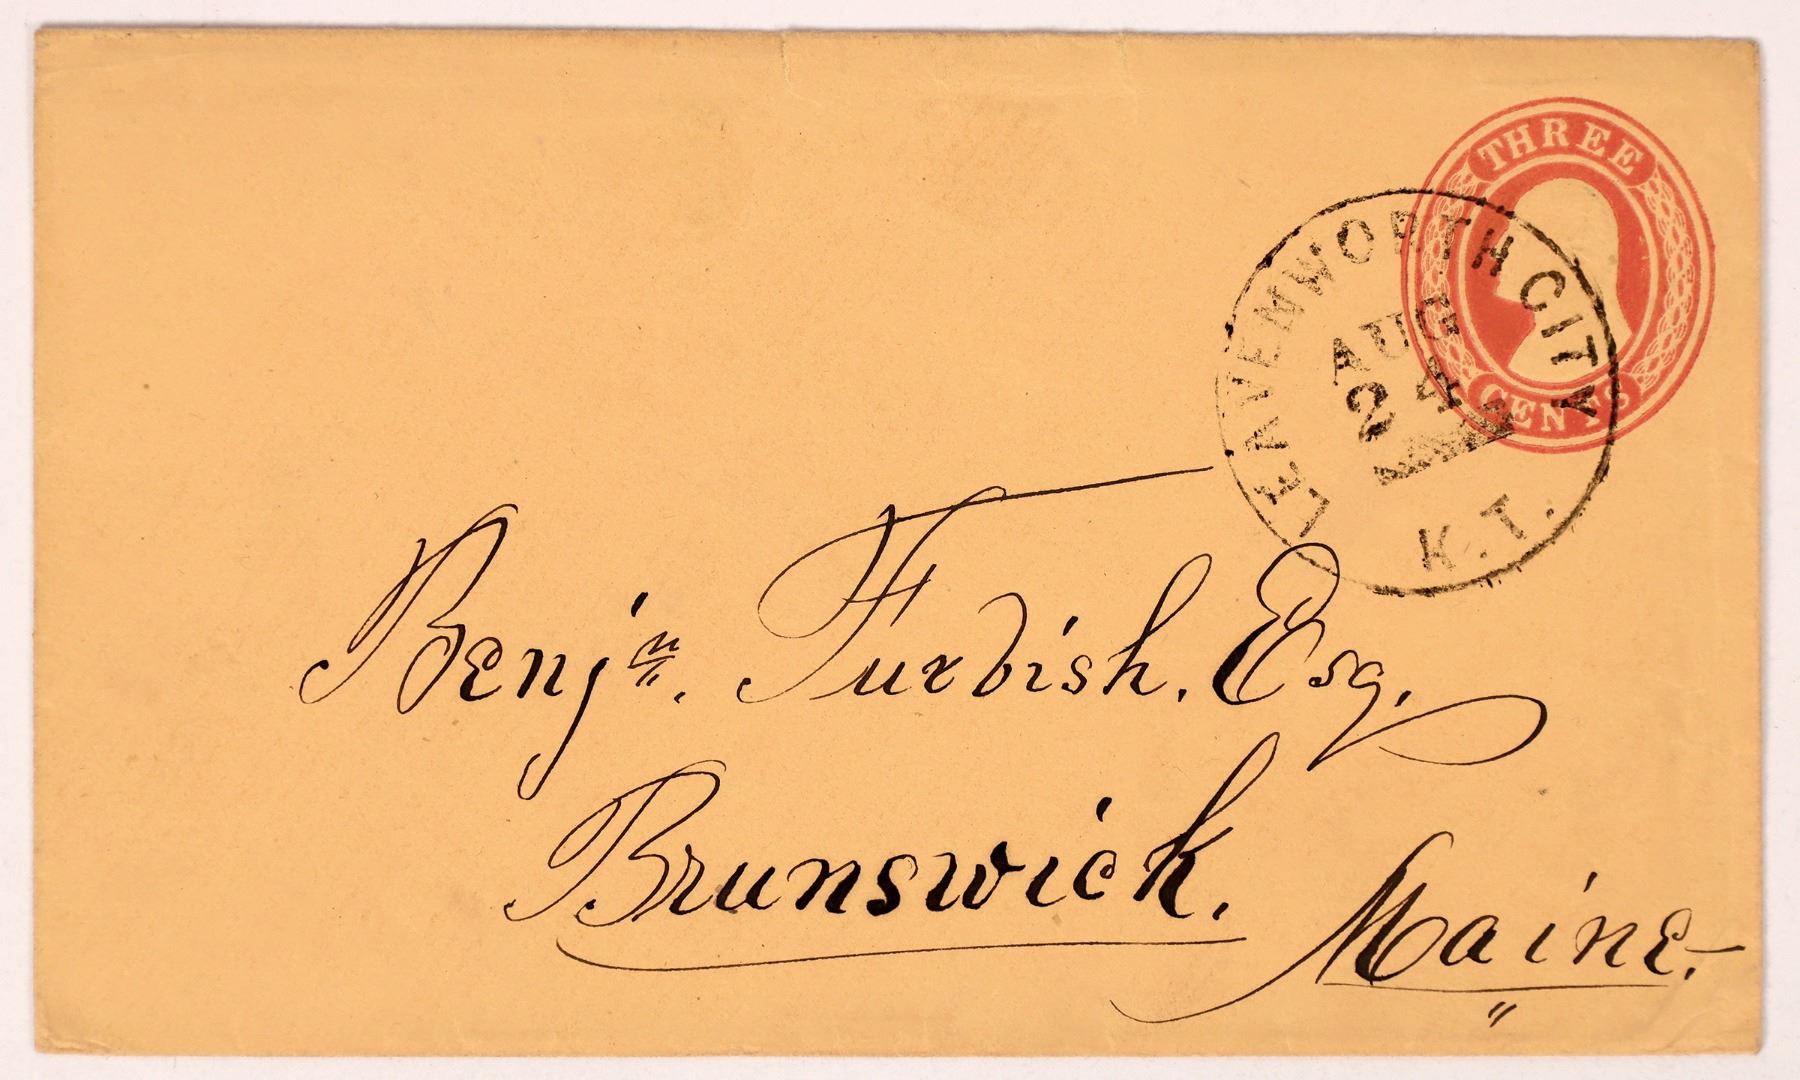 THREE
CENTS
LEAVENWORTH CITY
AUG
24
K.T.
Benjn. Furbish. Esq.
Brunswick.
Maine.